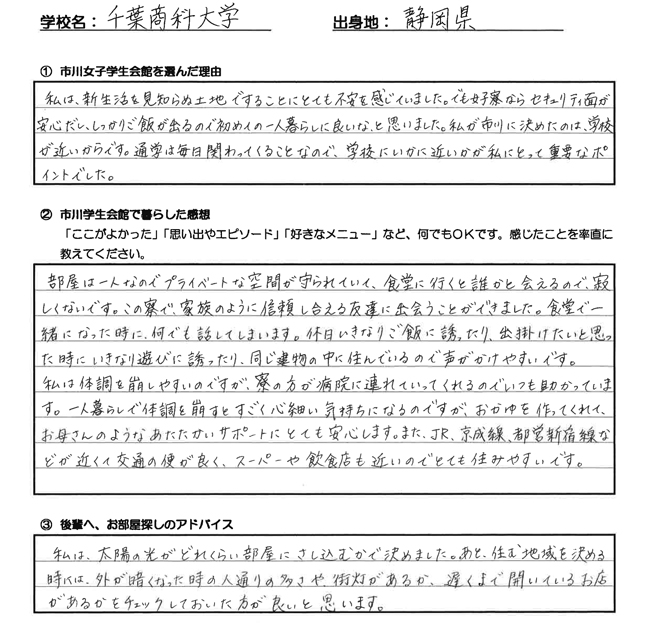 学校名： 千葉商科大学　出身地： 静岡県
① 市川女子学生会館を選んだ理由
私は、新生活を見知らぬ土地ですることにとても不安を感じていました。でも女子寮ならセキュリティ面が
安心だし、しっかりご飯が出るので初めての一人暮らしに良いな、と思いました。私が市川に決めたのは、学校
が近いからです。通学は毎日関わってくることなので、学校にいかに近いかが私にとって重要なポ
イントでした。
② 市川学生会館で暮らした感想
「ここがよかった」「思い出やエピソード」「好きなメニュー」など、何でもＯＫです。感じたことを率直に
教えてください。
部屋は一人なのでプライベートな空間が守られていて、食堂に行くと誰かと会えるので、寂
しくないです。この寮で、家族のように信頼し合える友達に出会うことができました。食堂で一
緒になった時に、何でも話してしまいます。休日いきなりご飯に誘ったり、出掛けたいと思っ
た時にいきなり遊びに誘ったり、同じ建物の中に住んでいるので声がかけやすいです。
私は体調を崩しやすいのですが、寮の方が病院に連れていってくれるのでいつも助かっていま
す。一人暮らしで体調を崩すとすごく心細い気持ちになるのですが、おかゆを作ってくれて、
お母さんのようなあたたかいサポートにとても安心します。また、JR、京成線、都営新宿線な
どが近くて交通の便が良く、スーパーや飲食店も近いのでとても住みやすいです。
③ 後輩へ、お部屋探しのアドバイス
私は、太陽の光がどれくらい部屋にさし込むかで決めました。あと、住む地域を決める
時には、外が暗くなった時の人通りの多さや、街灯があるか、遅くまで開いているお店
があるかをチェックしておいた方が良いと思います。